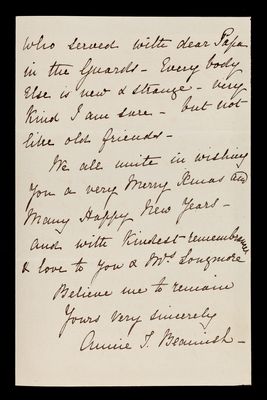 who served with dear Papa
in the Guards - Every body
Else is new & strange - very
Kind I am sure - but not
like old friends -
We all unite in wishing
You a very Merry Xmas and
Many Happy New Years -
And with Kindest remembrance
& love to You & Mrs Longmore
Believe me to remain
Yours Very sincerely
Annie T. Beamish -